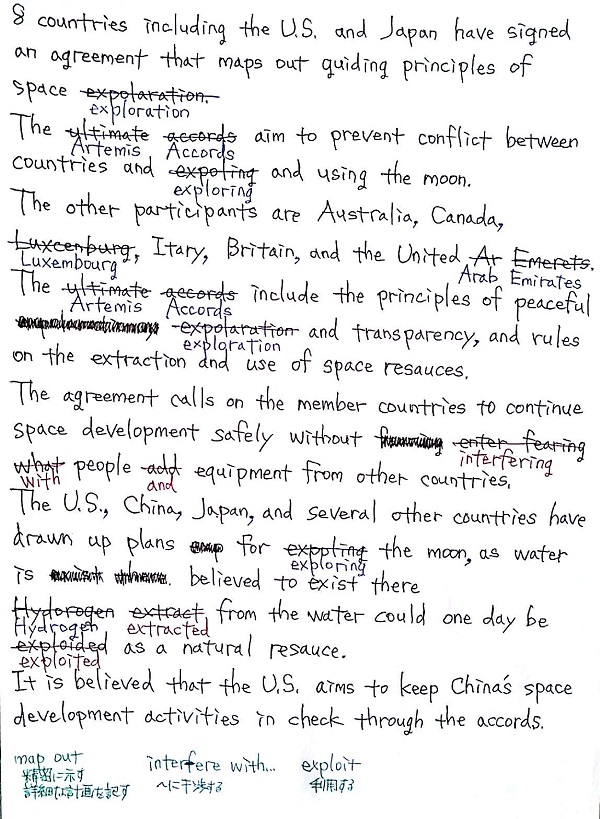 8 countries including the U.S. and Japan have signed
an agreement that maps out guiding principles of
space expolaration.
exploration
The ultimate accords aim to prevent conflict between
Artemis Accords
countries and expoling and using the moon.
exploring
The other participants are Australia, Canada,
Luxcenburg, Itary, Britain, and the United Ar Emerets.
Luxembourg Arab Emirates
The ultimate accords include the principles of peaceful
Artemis Accords
expolaration and transparency, and rules
exploration
on the extraction and use of space resauces.
The agreement calls on the member countries to continue
space development safely without enter fearing
interfering
what people add equipment from other countries.
with and
The U.S., China, Japan, and several other countries have
drawn up plans for exppling the moon, as water
exploring
is believed to exist there
Hydorogen extract from the water could one day be
Hydrogen extracted
exploided as a natural resauce.
exploited
It is believed that the U.S. aims to keep China's space
development activities in check through the accords.
map out interfere with... exploit
精密に示す 〜に干渉する 利用する
詳細な計画を記す